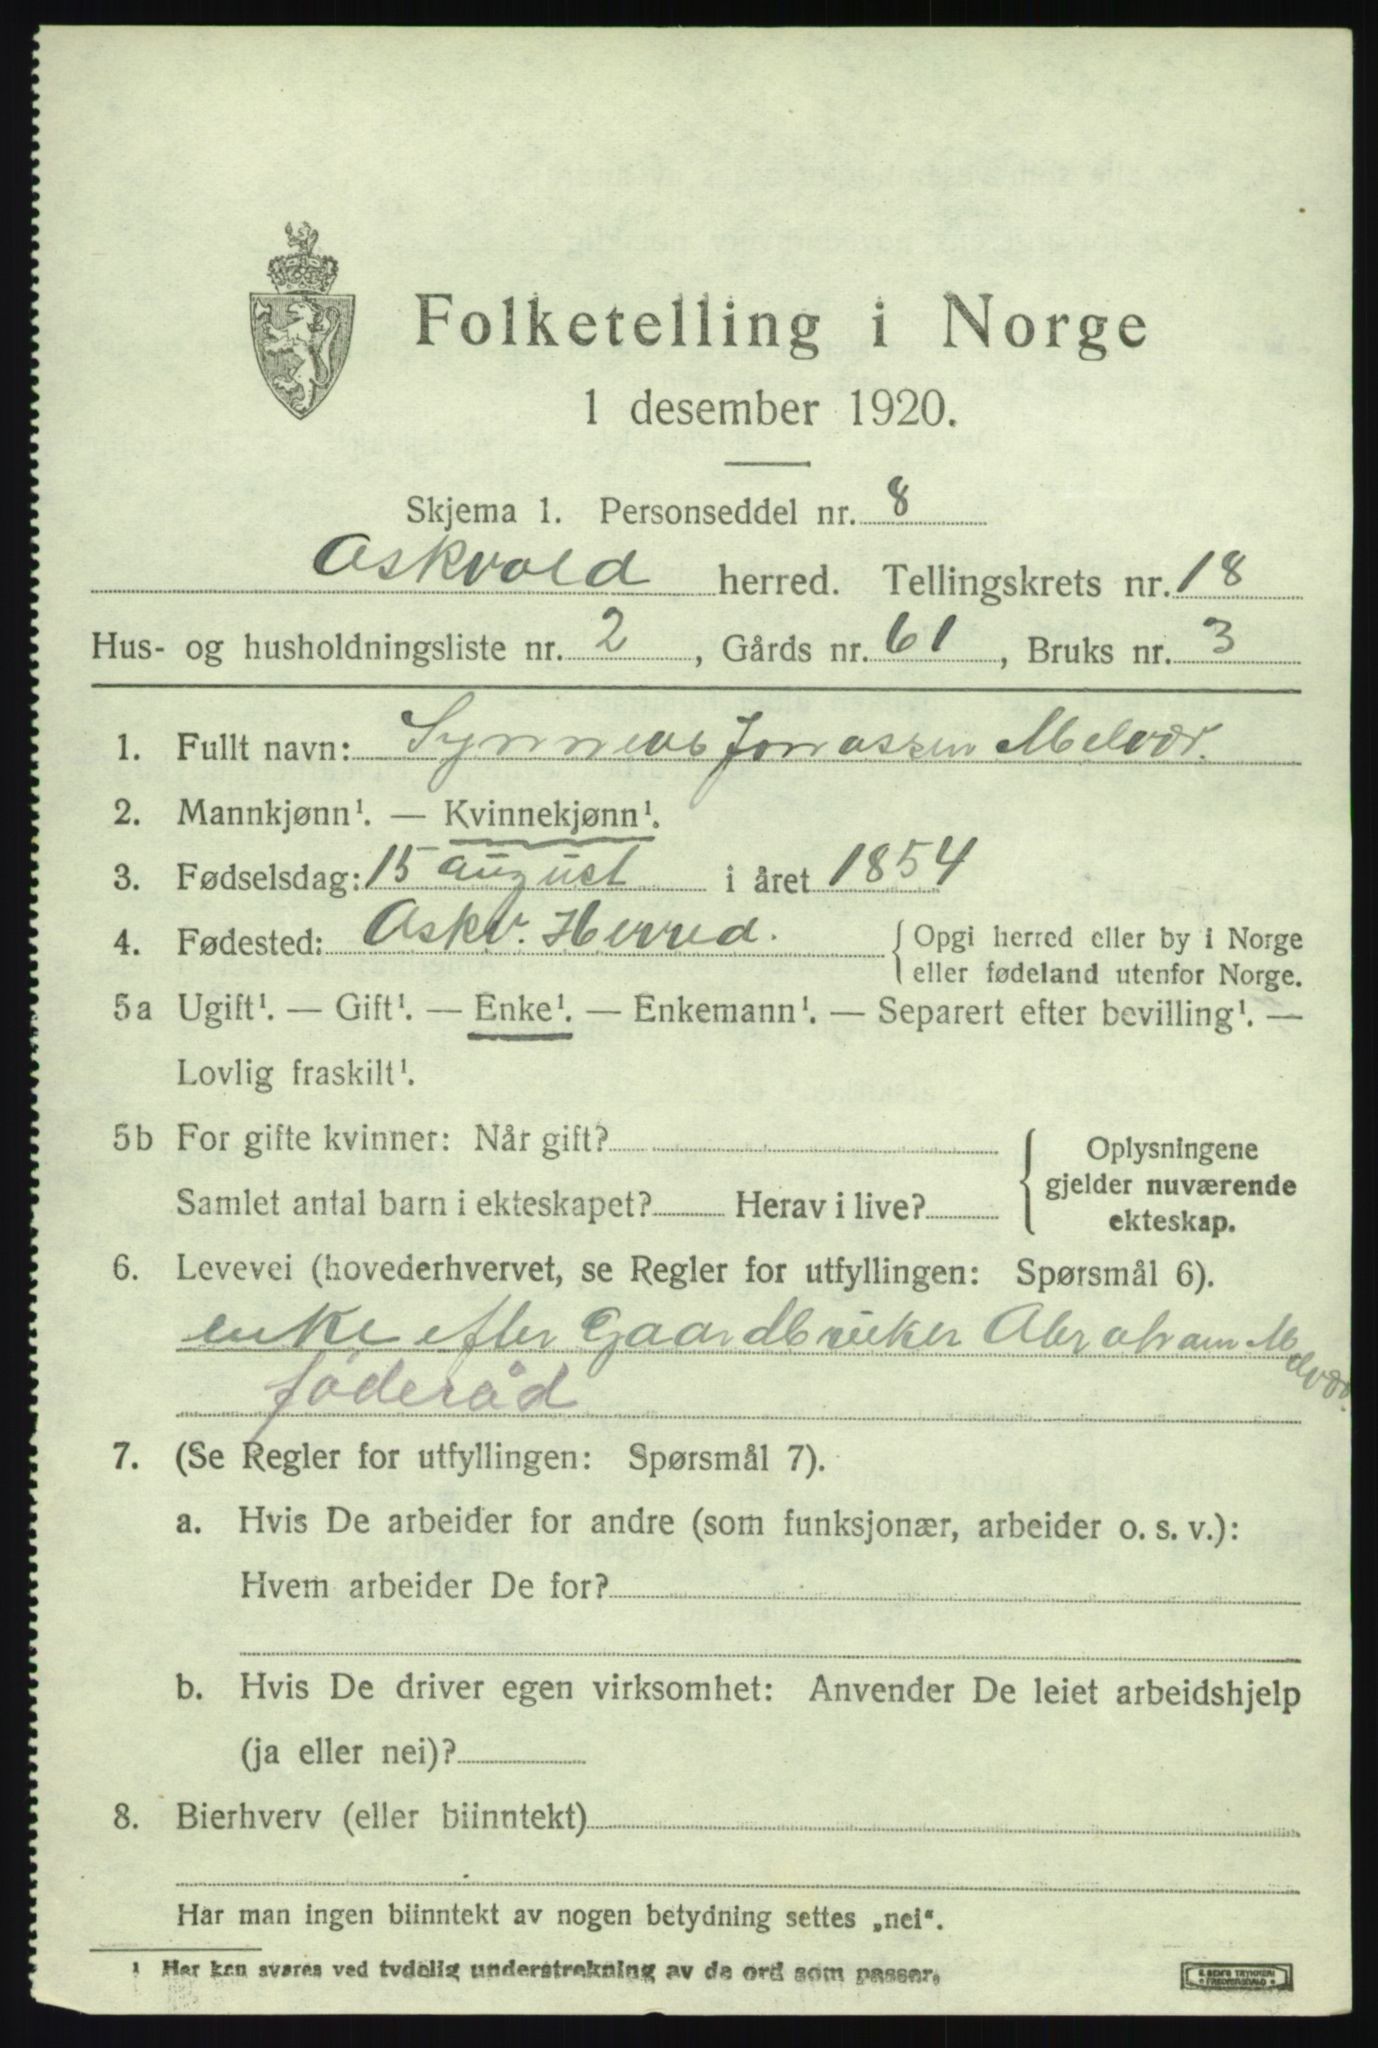 Folketelling i Norge
1 desember 1920.
Skjema 1. Personseddel nr. 8
Askvold herred. Tellingskrets nr. 18
Hus- og husholdningsliste nr. 2, Gårds nr. 61, Bruks nr. 3
1. Fullt navn: Jonassen Melvær.
2. Mannkjønn¹. — Kvinnekjønn¹.
3. Fødselsdag: 15 august i året 1854
4. Fødested: Askv. Herred. { Opgi herred eller by i Norge
eller fødeland utenfor Norge.
5a Ugift¹. — Gift¹. — Enke¹. — Enkemann¹. — Separert efter bevilling¹. —
Lovlig fraskilt¹.
5b For gifte kvinner: Når gift?
Samlet antal barn i ekteskapet? Herav i live?
{ Oplysningene
gjelder nuværende
ekteskap.
6. Levevei (hovederhvervet, se Regler for utfyllingen: Spørsmål 6).
enke efter Gaardbruker Abraham Melvær.
føderåd
7. (Se Regler for utfyllingen: Spørsmål 7).
a. Hvis De arbeider for andre (som funksjonær, arbeider o. s. v.):
Hvem arbeider De for?
b. Hvis De driver egen virksomhet: Anvender De leiet arbeidshjelp
(ja eller nei)?
8. Bierhverv (eller biinntekt)
Har man ingen biinntekt av nogen betydning settes „nei“.
¹ Her kan svares ved tydelig understrekning av de ord som passer.